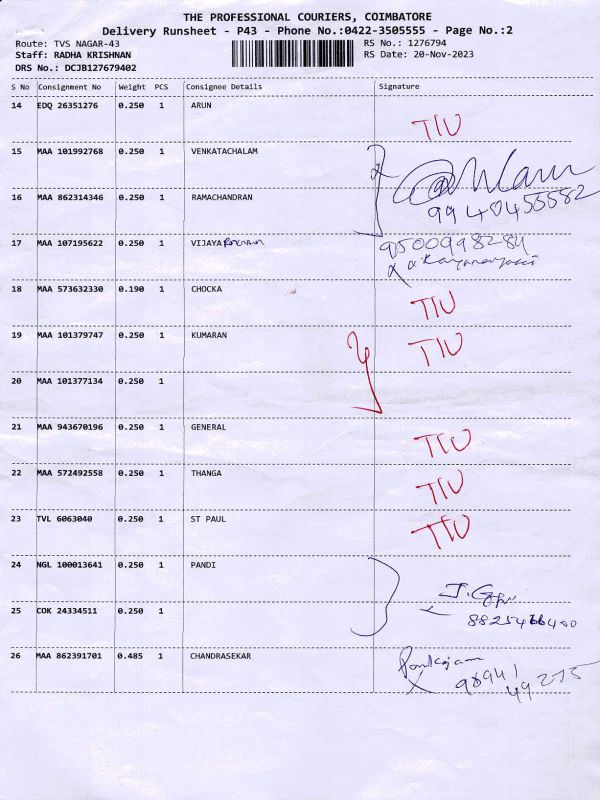 THE PROFESSIONAL COURIERS, COIMBATORE
Delivery Runsheet - P43 - Phone No.:0422-3505555 - Page No.:2
Route: TVS NAGAR-43 RS No.: 1276794
Staff: RADHA KRISHNAN RS Date: 20-Nov-2023
DRS No.: DCJB127679402
S No Consignment No Weight PCS Consignee Details Signature
14 EDQ 26351276 0.250 1 ARUN
TIU
15 MAA 101992768 0.250 1 VENKATACHALAM
16 MAA 862314346 0.250 1 RAMACHANDRAN
99 40455582
17 MAA 107195622 0.250 1 VIJAYA
9500998284
18 MAA 573632330 0.190 1 CHOCKA
TIU
19 MAA 101379747 0.250 1 KUMARAN TIU
20 MAA 101377134 0.250 1
21 MAA 943670196 0.250 1 GENERAL
TIU
22 MAA 572492558 0.250 1 THANGA
TIU
23 TVL 6063040 0.250 1 ST PAUL
TIU
24 NGL 100013641 0.250 1 PANDI
25 COK 24334511 0.250 1
26 MAA 862391701 0.485 1 CHANDRASEKAR
Pankajam
98941
49275